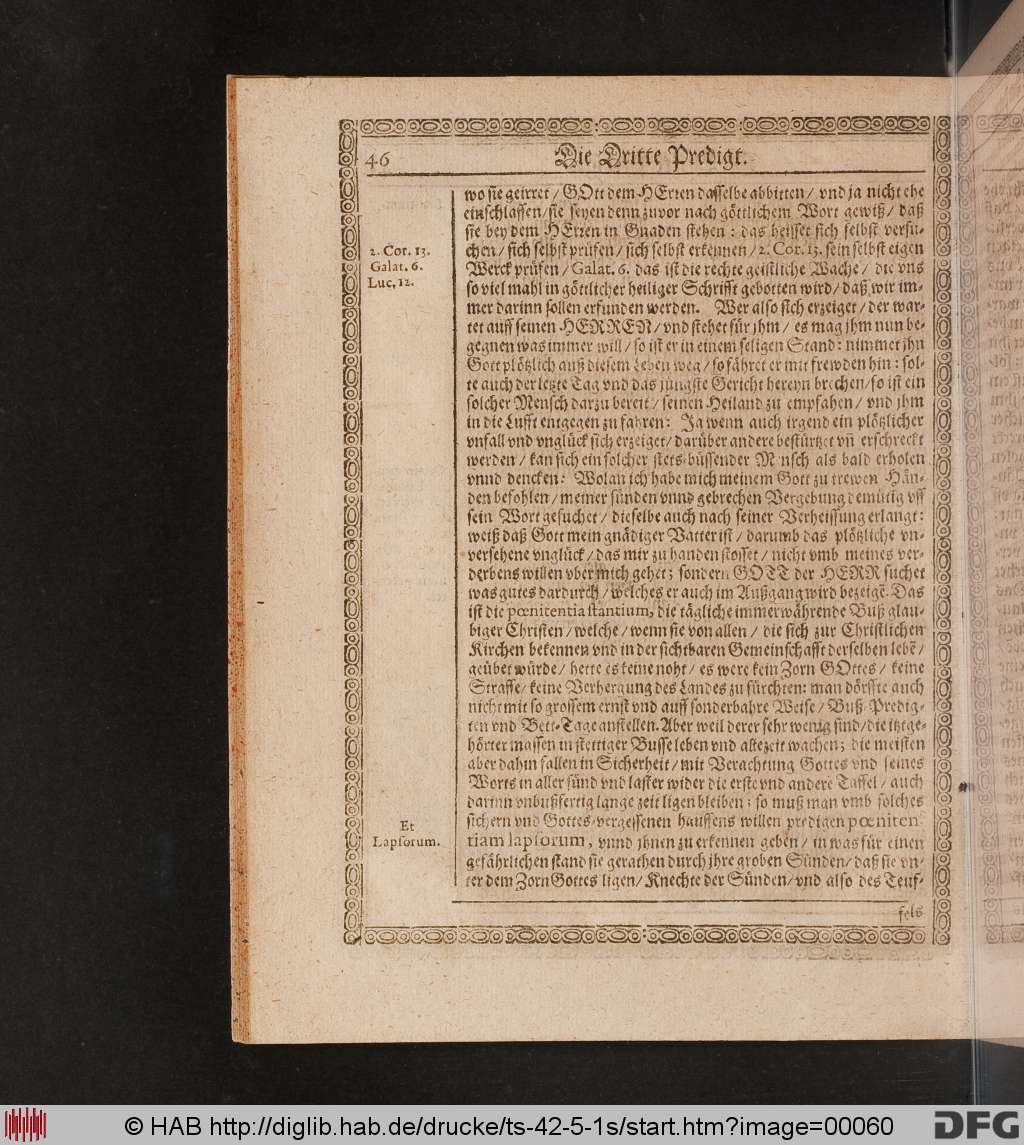 46
Die Dritte Predigt.
wo sie geirret / GOtt dem HErren dasselbe abbitten / vnd ja nicht ehe
einschlaffen / sie seyen denn zuvor nach göttlichem Wort gewiß / daß
sie bey dem HErren in Gnaden stehen : das heisset sich selbst versu-
chen / sich selbst prüfen / sich selbst erkennen / 2. Cor. 13. sein selbst eigen
Werck prüfen / Galat. 6. das ist die rechte geistliche Wache / die vns
so viel mahl in göttlicher heiliger Schrifft gebotten wird / daß wir im-
mer darinn sollen erfunden werden. Wer also sich erzeiget / der war-
tet auff seinen HERREN / vnd stehet für jhm / es mag jhm nun be-
gegnen was immer will / so ist er in einem seligen Stand : nimmet jhn
Gott plötzlich auß diesem Leben weg / so fähret er mit frewden hin : sol-
te auch der letzte Tag vnd das jüngste Gericht hereyn brechen / so ist ein
solcher Mensch darzu bereit / seinen Heiland zu empfahen / vnd jhm
in die Lufft entgegen zu fahren : Ja wenn auch irgend ein plötzlicher
vnfall vnd vnglück sich erzeiget / darüber andere bestürtzet vn̄ erschreckt
werden / kan sich ein solcher stets-büssender Mensch als bald erholen
vnnd dencken : Wolan ich habe mich meinem Gott zu trewen Hän-
den befohlen / meiner sünden vnnd gebrechen Vergebung demütig vff
sein Wort gesuchet / dieselbe auch nach seiner Verheissung erlangt :
weiß daß Gott mein gnädiger Vatter ist / darumb das plötzliche vn-
versehene vnglück / das mir zu handen stosset / nicht vmb meines ver-
derbens willen vber mich gehet ; sondern GOTT der HERR suchet
was gutes dardurch / welches er auch im Außgang wird bezeigē. Das
ist die pœnitentia stantium, die tägliche immerwährende Buß glau-
biger Christen / welche / wenn sie von allen / die sich zur Christlichen
Kirchen bekennen vnd in der sichtbaren Gemeinschafft derselben lebē /
geübet würde / hette es keine noht / es were kein Zorn GOttes / keine
Straffe / keine Verhergung des Landes zu fürchten : man dörffte auch
nicht mit so grossem ernst vnd auff sonderbahre Weise / Buß-Predig-
ten vnd Bett-Tage anstellen. Aber weil derer sehr wenig sind / die itztge-
hörter massen in stettiger Busse leben vnd allezeit wachen ; die meisten
aber dahin fallen in Sicherheit / mit Verachtung Gottes vnd seines
Worts in aller sünd vnd laster wider die erste vnd andere Taffel / auch
darinn vnbußfertig lange zeit ligen bleiben ; so muß man vmb solches
sichern vnd Gottes-vergessenen hauffens willen predigen pœniten-
tiam lapsorum, vnnd jhnen zu erkennen geben / in was für einen
gefährlichen stand sie gerathen durch jhre groben Sünden / daß sie vn-
ter dem Zorn Gottes ligen / Knechte der Sünden / vnd also des Teuf-
fels
2. Cor. 13.
Galat. 6.
Luc, 12.
Et
Lapsorum.
© HAB http://diglib.hab.de/drucke/ts-42-5-1s/start.htm?image=00060
DFG